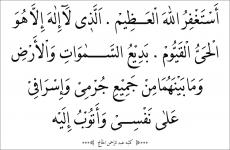 أَسْتَغْفِرُ اللهَ الْعَظِيْمَ . اَلَّذِي لَآ إِلٰهَ إِلَّا هُوَ
الْحَيُّ الْقَيُّومُ . بَدِيْعُ السَّمٰوَاتِ وَالْأَرْضِ
وَمَا بَيْنَهُمَا مِنْ جَمِيْعِ جُرْمِيْ وَإِسْرَافِيْ
عَلٰى نَفْسِيْ وَأَتُوْبُ إِلَيْهِ